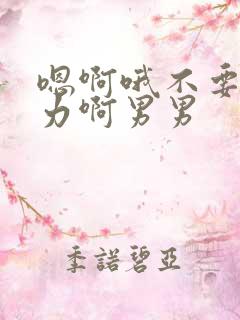 嗯啊哦不要
力啊男男
季諾碧亞